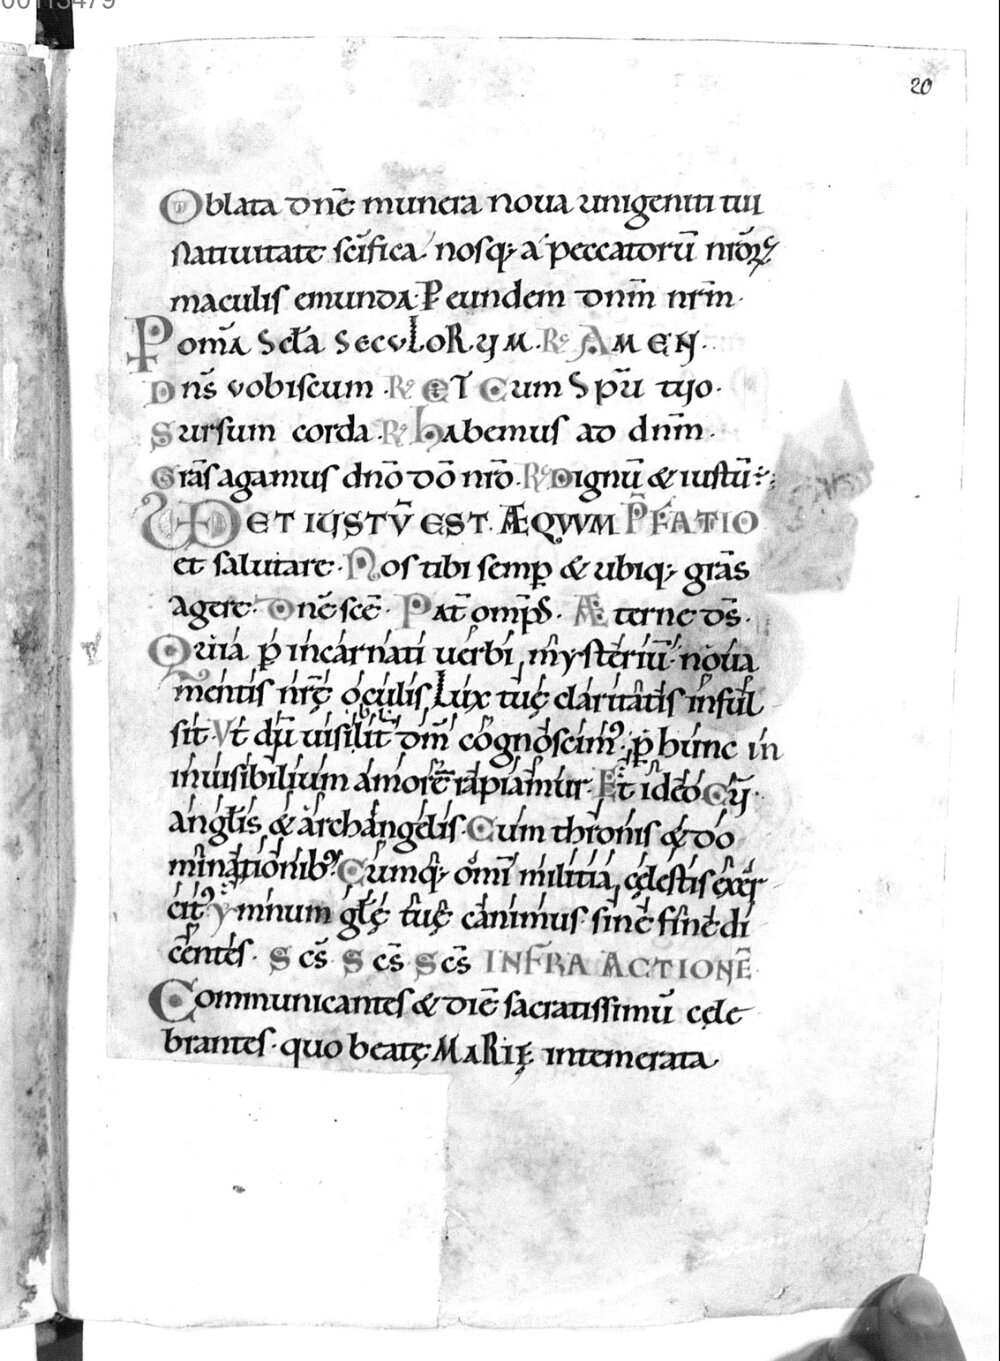 00113479
20
Oblata dnē munera noua unigeniti tui
natiuitate scīfica. nosq; a peccatorū nr̄oꝝ
maculis emunda. P eundem dnm̄ nr̄m.
P om̄a scła seculoRum. R̷ AMEN.
Dns̄ vobiscum. R̷ ET Cum Spū tuo.
Sursum corda. R̷ habemus ad dnm̄.
Grās agamus dnō dō nrō. R̷ Dignū & iustū.
VD ET IUSTV̄ EST. ÆQVVM P̄FATIO
et salutare. Nos tibi semꝑ & ubiq; grās
agere. Dnē scē. Pat̄ omp̄s. Æterne ds̄.
Quia ꝑ incarnati uerbi mysteriū noua
mentis nrę̄ oculis Lux tuę claritatis inful
sit. Vt dū uisibilit̄ dm̄ cognoscim᷒. ꝑ hunc in
inuisibilium amorē rapiamur. Et ideo Cū
angłis & archangelis. Cum thronis & do
minationib᷒. Cumq; om̄i militia cęlestis exer
cit᷒. ymnum głę tuę canimus sine fine di
centes. Scs̄ Scs̄ Scs̄ INFRA ACTIONĒ
Communicantes & diē sacratissimū cęle
brantes. quo beatę MaRię intemerata